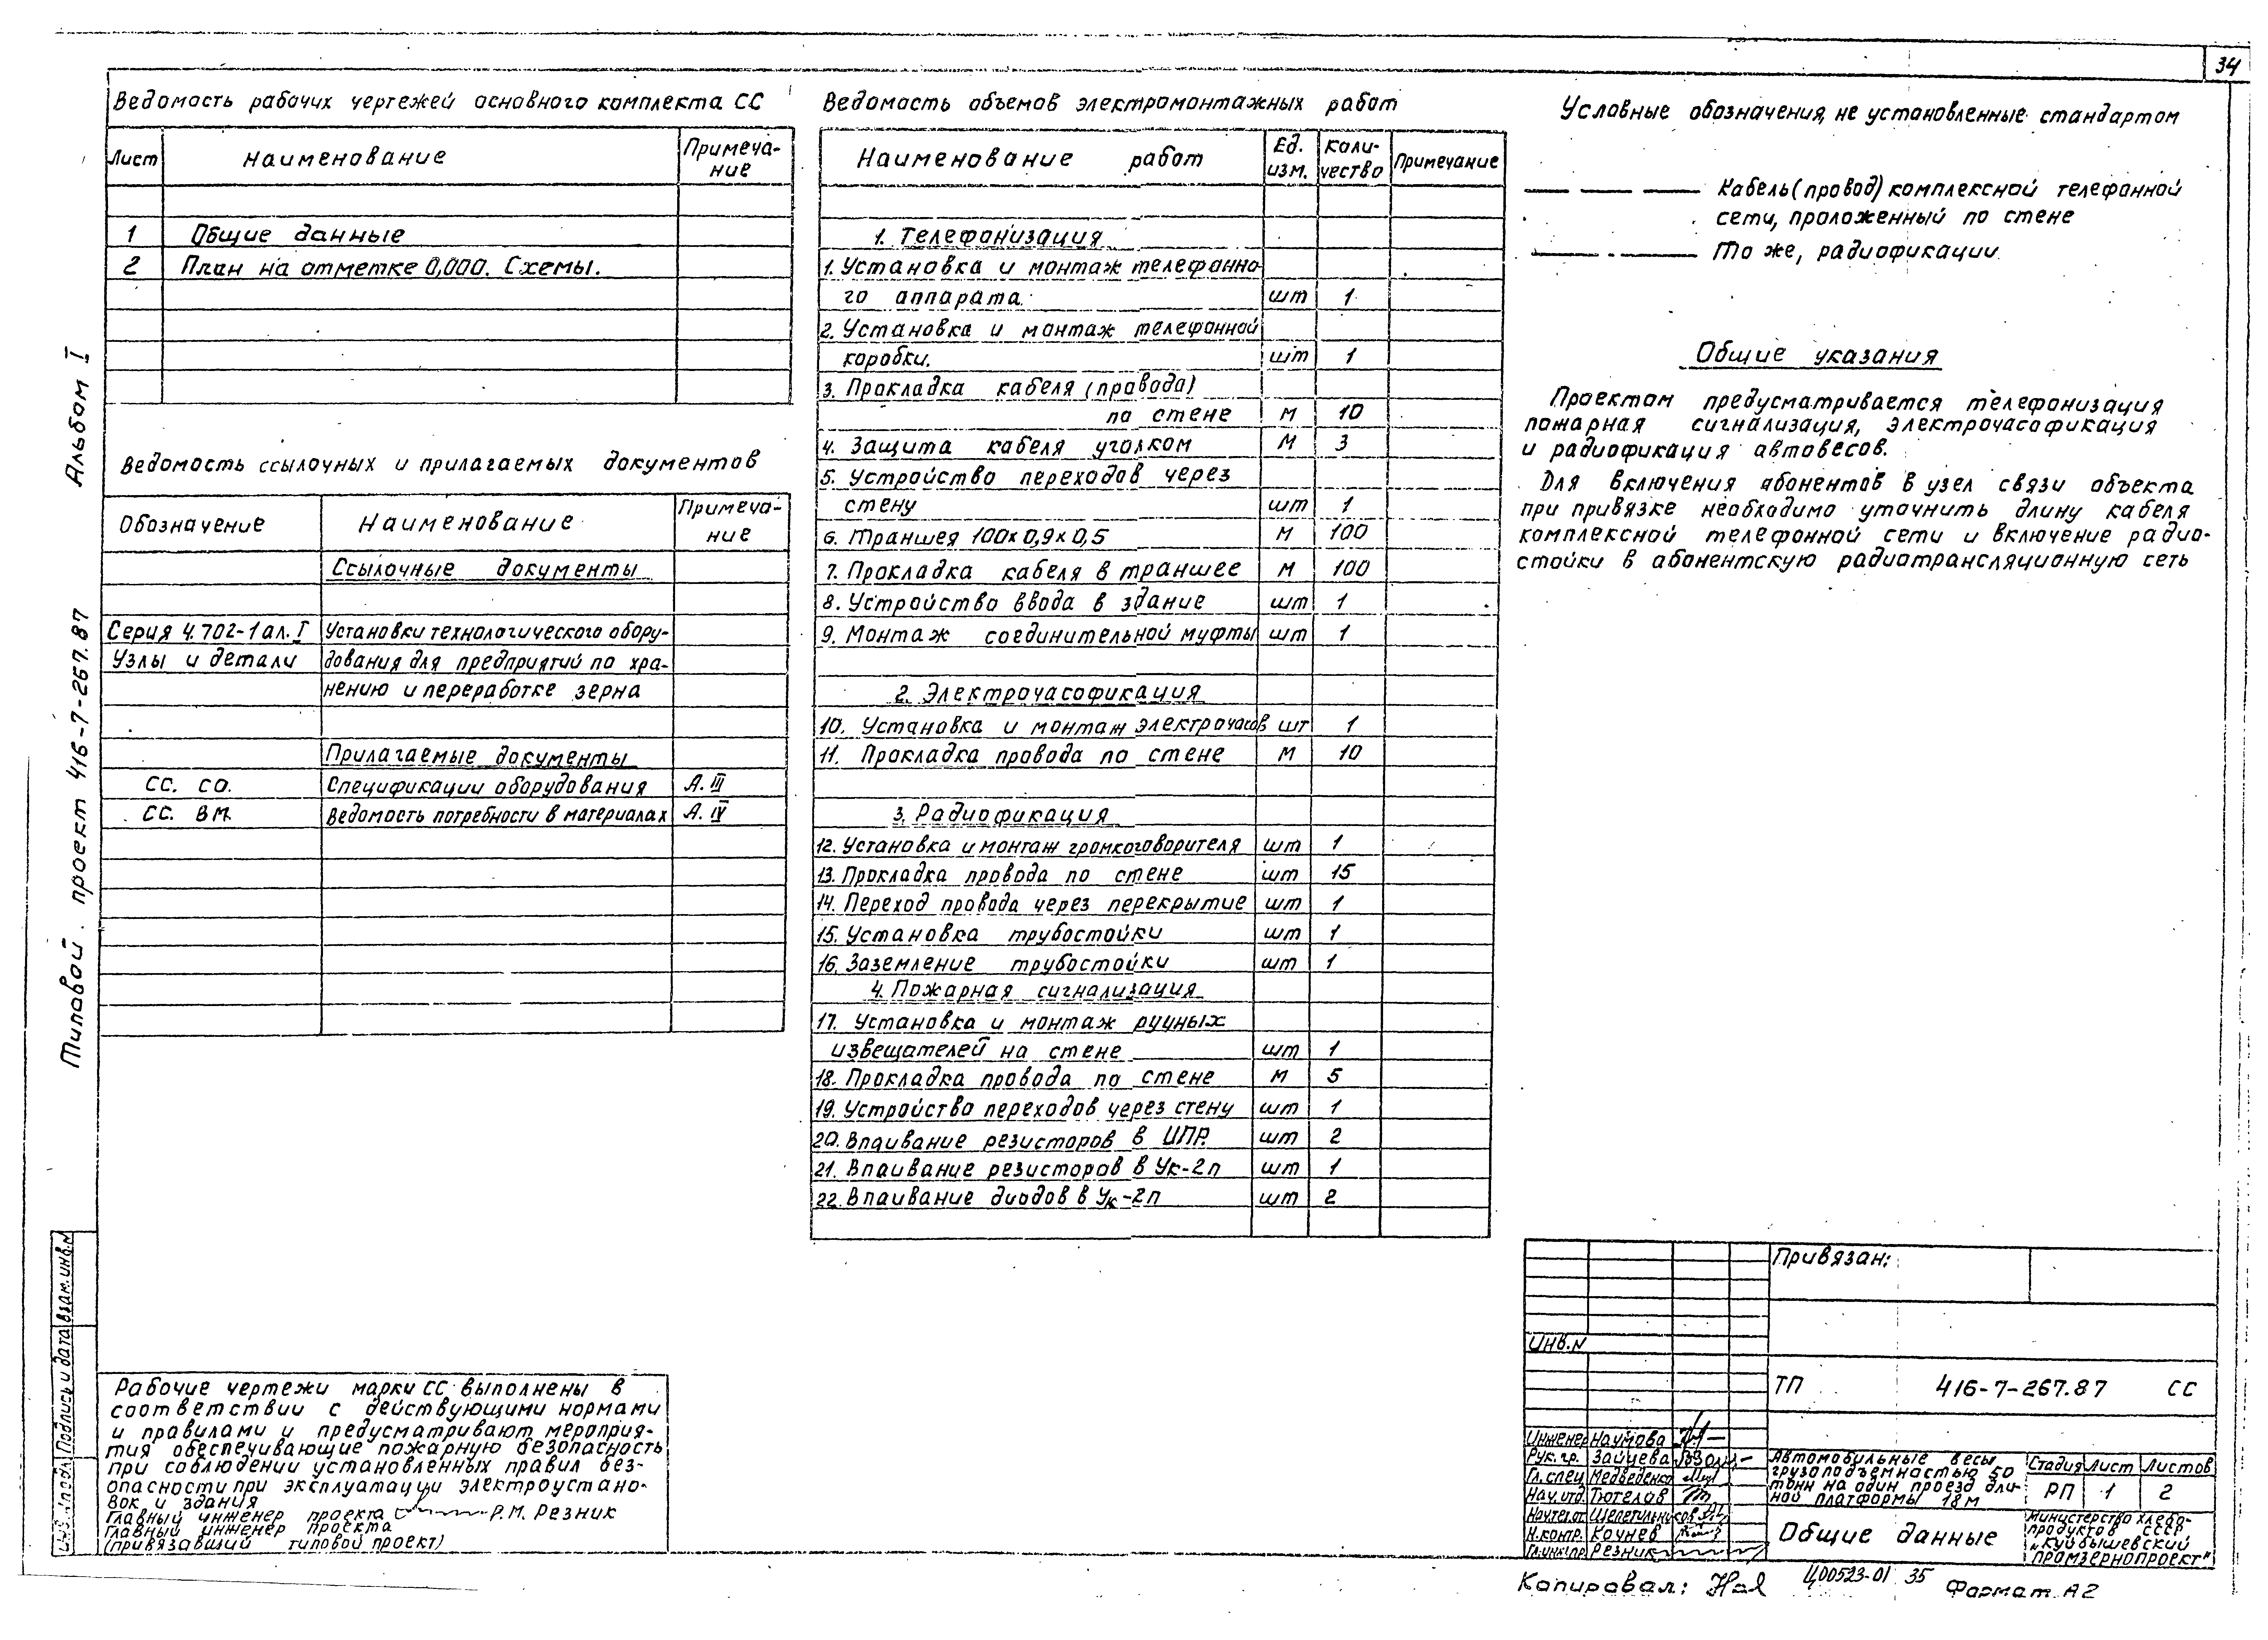 34
Ведомость рабочих чертежей основного комплекта СС
Лист Наименование Примеча-
ние
1 Общие данные
2 План на отметке 0,000. Схемы.
Ведомость ссылочных и прилагаемых документов
Обозначение Наименование Примеча-
ние
Ссылочные документы
Серия 4.702-1 ал. I Установки технологического обору-
Узлы и детали дования для предприятий по хра-
нению и переработке зерна
Прилагаемые документы
СС. СО. Спецификации оборудования А. III
СС. ВМ. Ведомость потребности в материалах А. IV
Ведомость объемов электромонтажных работ
Наименование работ Ед. изм. Коли-чество Примечание
1. Телефонизация
1. Установка и монтаж телефонно-
го аппарата. шт 1
2. Установка и монтаж телефонной
коробки. шт 1
3. Прокладка кабеля (провода)
по стене м 10
4. Защита кабеля уголком м 3
5. Устройство переходов через
стену шт 1
6. Траншея 100х0,9х0,5 м 100
7. Прокладка кабеля в траншее м 100
8. Устройство ввода в здание шт 1
9. Монтаж соединительной муфты шт 1
2. Электрочасофикация
10. Установка и монтаж электрочасов шт 1
11. Прокладка провода по стене м 10
3. Радиофикация
12. Установка и монтаж громкоговорителя шт 1
13. Прокладка провода по стене шт 15
14. Переход провода через перекрытие шт 1
15. Установка трубостойки шт 1
16. Заземление трубостойки шт 1
4. Пожарная сигнализация
17. Установка и монтаж ручных
извещателей на стене шт 1
18. Прокладка провода по стене м 5
19. Устройство переходов через стену шт 1
20. Впаивание резисторов в ИПР. шт 2
21. Впаивание резисторов в Ук-2п шт 1
22. Впаивание диодов в Ук-2п шт 2
Условные обозначения, не установленные стандартом
Кабель (провод) комплексной телефонной
сети, проложенный по стене
То же, радиофикации
Общие указания
Проектом предусматривается телефонизация
пожарная сигнализация, электрочасофикация
и радиофикация автовесов.
Для включения абонентов в узел связи объекта
при привязке необходимо уточнить длину кабеля
комплексной телефонной сети и включение радио-
стойки в абонентскую радиотрансляционную сеть
Типовой проект 416-7-267.87 Альбом I
Инв. № подл. Подпись и дата Взам. инв. №
Рабочие чертежи марки СС выполнены в
соответствии с действующими нормами
и правилами и предусматривают мероприя-
тия обеспечивающие пожарную безопасность
при соблюдении установленных правил без-
опасности при эксплуатации электроустано-
вок и здания
Главный инженер проекта Р.М. Резник
Главный инженер проекта
(привязавший типовой проект)
Привязан:
Инв. №
ТП 416-7-267.87 СС
Инженер Наумова
Рук. гр. Зайцева
Гл. спец Медведенко
Нач. отд. Тютелов
Н.контр. Кочнев
Гл. инж.пр. Резник
Автомобильные весы
грузоподъемностью 50
тонн на один проезд дли-
ной платформы 18м
Стадия Лист Листов
РП 1 2
Общие данные
Министерство хлебо-
продуктов СССР
"Куйбышевский
Промзернопроект"
Копировал: Ц00523-01 35 Формат А2